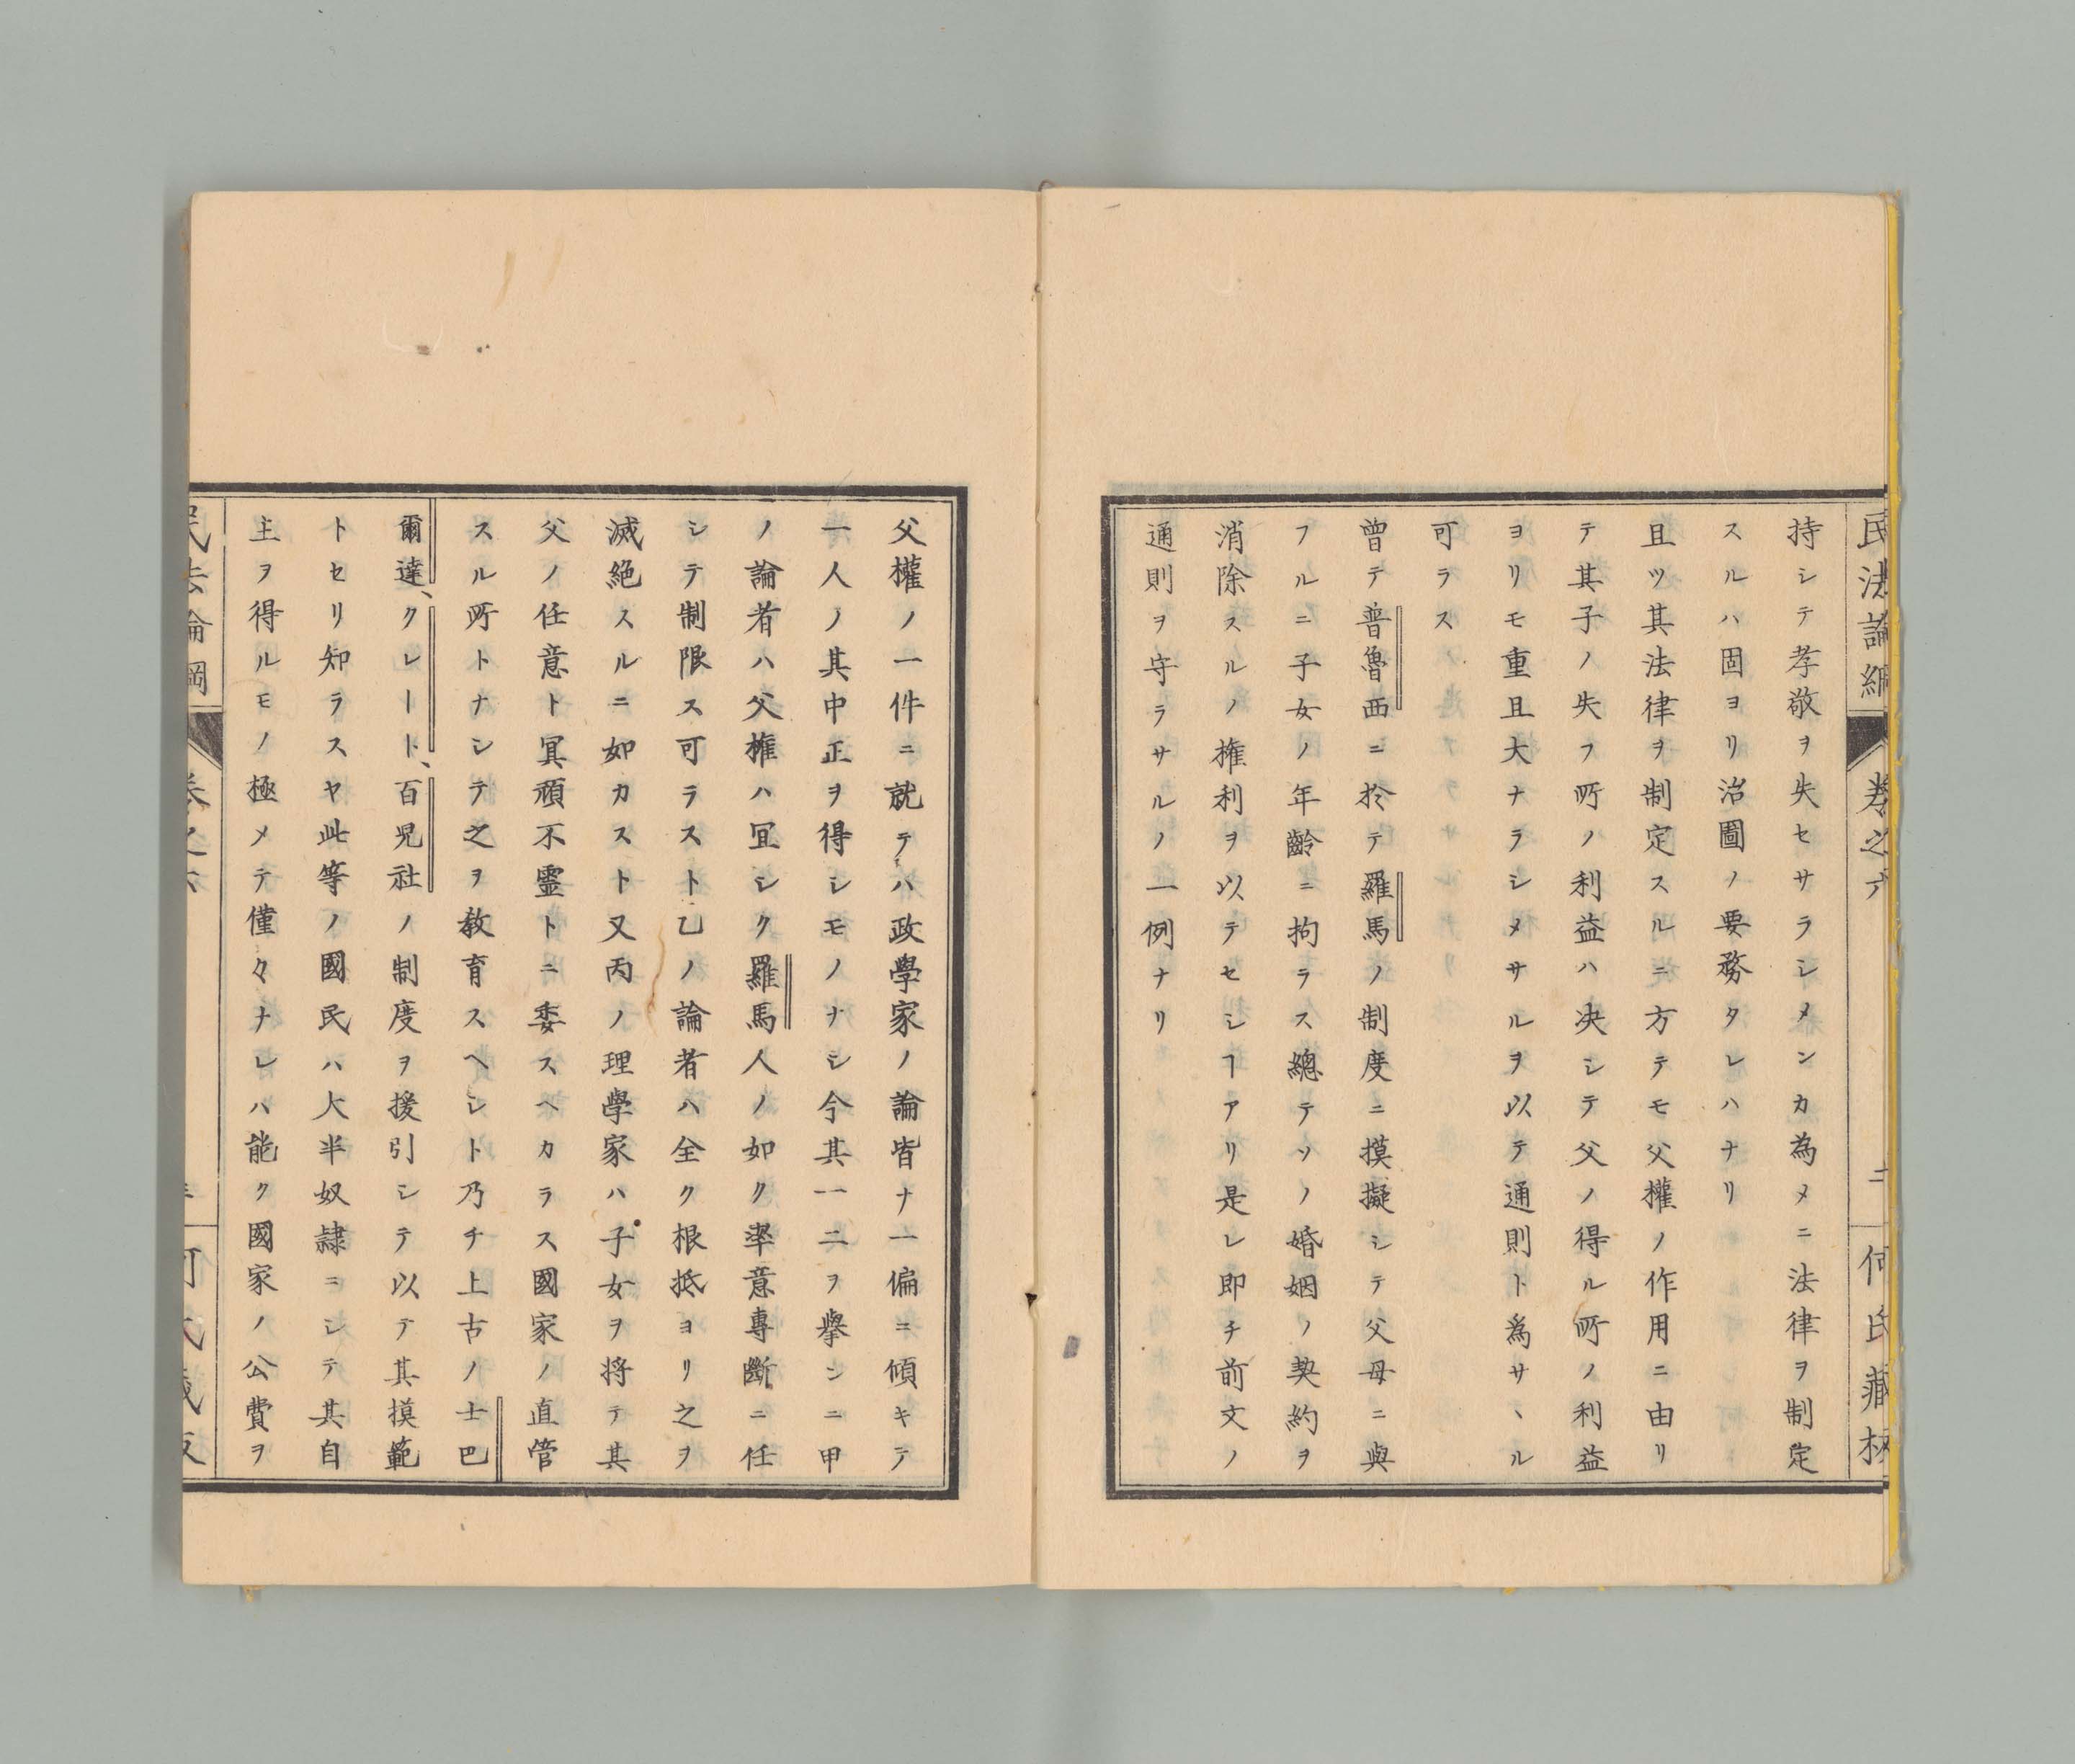 民法論綱 卷之六 二 何氏藏板
持シテ孝敬ヲ失セサラシメンカ為メニ法律ヲ制定
スルハ固ヨリ治圖ノ要務タレハナリ
且ツ其法律ヲ制定スルニ方テモ父權ノ作用ニ由リ
テ其子ノ失フ所ノ利益ハ决シテ父ノ得ル所ノ利益
ヨリモ重且大ナラシメサルヲ以テ通則ト為サヽル
可ラス
曾テ普魯西ニ於テ羅馬ノ制度ニ摸擬シテ父母ニ與
フルニ子女ノ年齡ニ拘ラス總テソノ婚姻ノ契約ヲ
消除スルノ権利ヲ以テセシヿアリ是レ即チ前文ノ
通則ヲ守ラサルノ一例ナリ
父權ノ一件ニ就テハ政學家ノ論皆ナ一偏ニ傾キテ
一人ノ其中正ヲ得シモノナシ今其一二ヲ擧シニ甲
ノ論者ハ父権ハ冝シク羅馬人ノ如ク率意專斷ニ任
シテ制限ス可ラスト乙ノ論者ハ全ク根抵ヨリ之ヲ
滅絶スルニ如カスト又丙ノ理學家ハ子女ヲ将テ其
父ノ任意ト冥頑不靈トニ委スヘカラス國家ノ直管
スル所トナシテ之ヲ敎育スヘシト乃チ上古ノ士巴
爾達、クレート、百児社ノ制度ヲ援引シテ以テ其摸範
トセリ知ラスヤ此等ノ國民ハ大半奴隷ニシテ其自
主ヲ得ルモノ極メテ僅々ナレハ能ク國家ノ公費ヲ
民法論綱 卷之六 何氏藏板